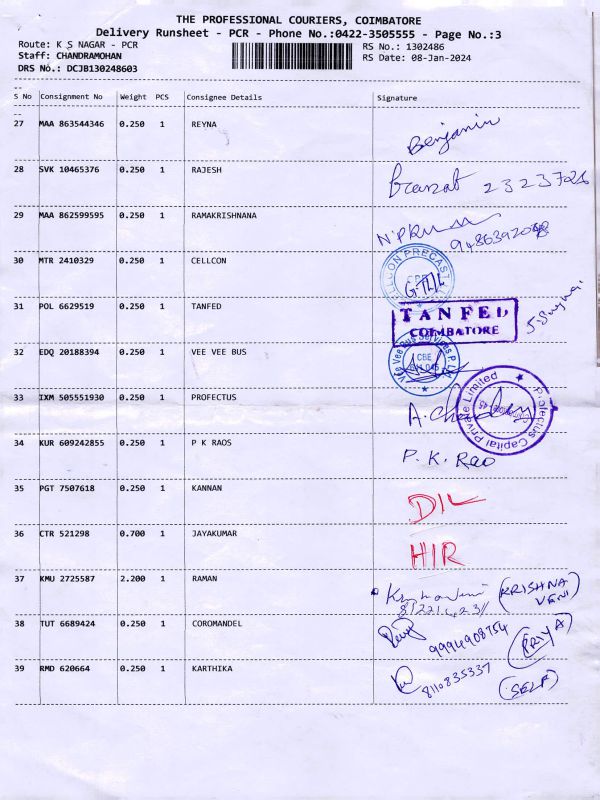 THE PROFESSIONAL COURIERS, COIMBATORE
Delivery Runsheet - PCR - Phone No.:0422-3505555 - Page No.:3
Route: K S NAGAR - PCR RS No.: 1302486
Staff: CHANDRAMOHAN RS Date: 08-Jan-2024
DRS No.: DCJB130248603
S No Consignment No Weight PCS Consignee Details Signature
27 MAA 863544346 0.250 1 REYNA Benjamin
28 SVK 10465376 0.250 1 RAJESH 2323726
29 MAA 862599595 0.250 1 RAMAKRISHNANA
30 MTR 2410329 0.250 1 CELLCON CELLCON PRECAST CBE
31 POL 6629519 0.250 1 TANFED TANFED
COIMBATORE
32 EDQ 20188394 0.250 1 VEE VEE BUS Vee Vee Bus Services P. Ltd CBE
33 IXM 505551930 0.250 1 PROFECTUS Profectus Capital Private Limited
34 KUR 609242855 0.250 1 P K RAOS P. K. Rao
35 PGT 7507618 0.250 1 KANNAN DIL
36 CTR 521298 0.700 1 JAYAKUMAR HIR
37 KMU 2725587 2.200 1 RAMAN (KRISHNA VENI)
38 TUT 6689424 0.250 1 COROMANDEL 9994908754 (PRIYA)
39 RMD 620664 0.250 1 KARTHIKA 8110835337 (SELF)